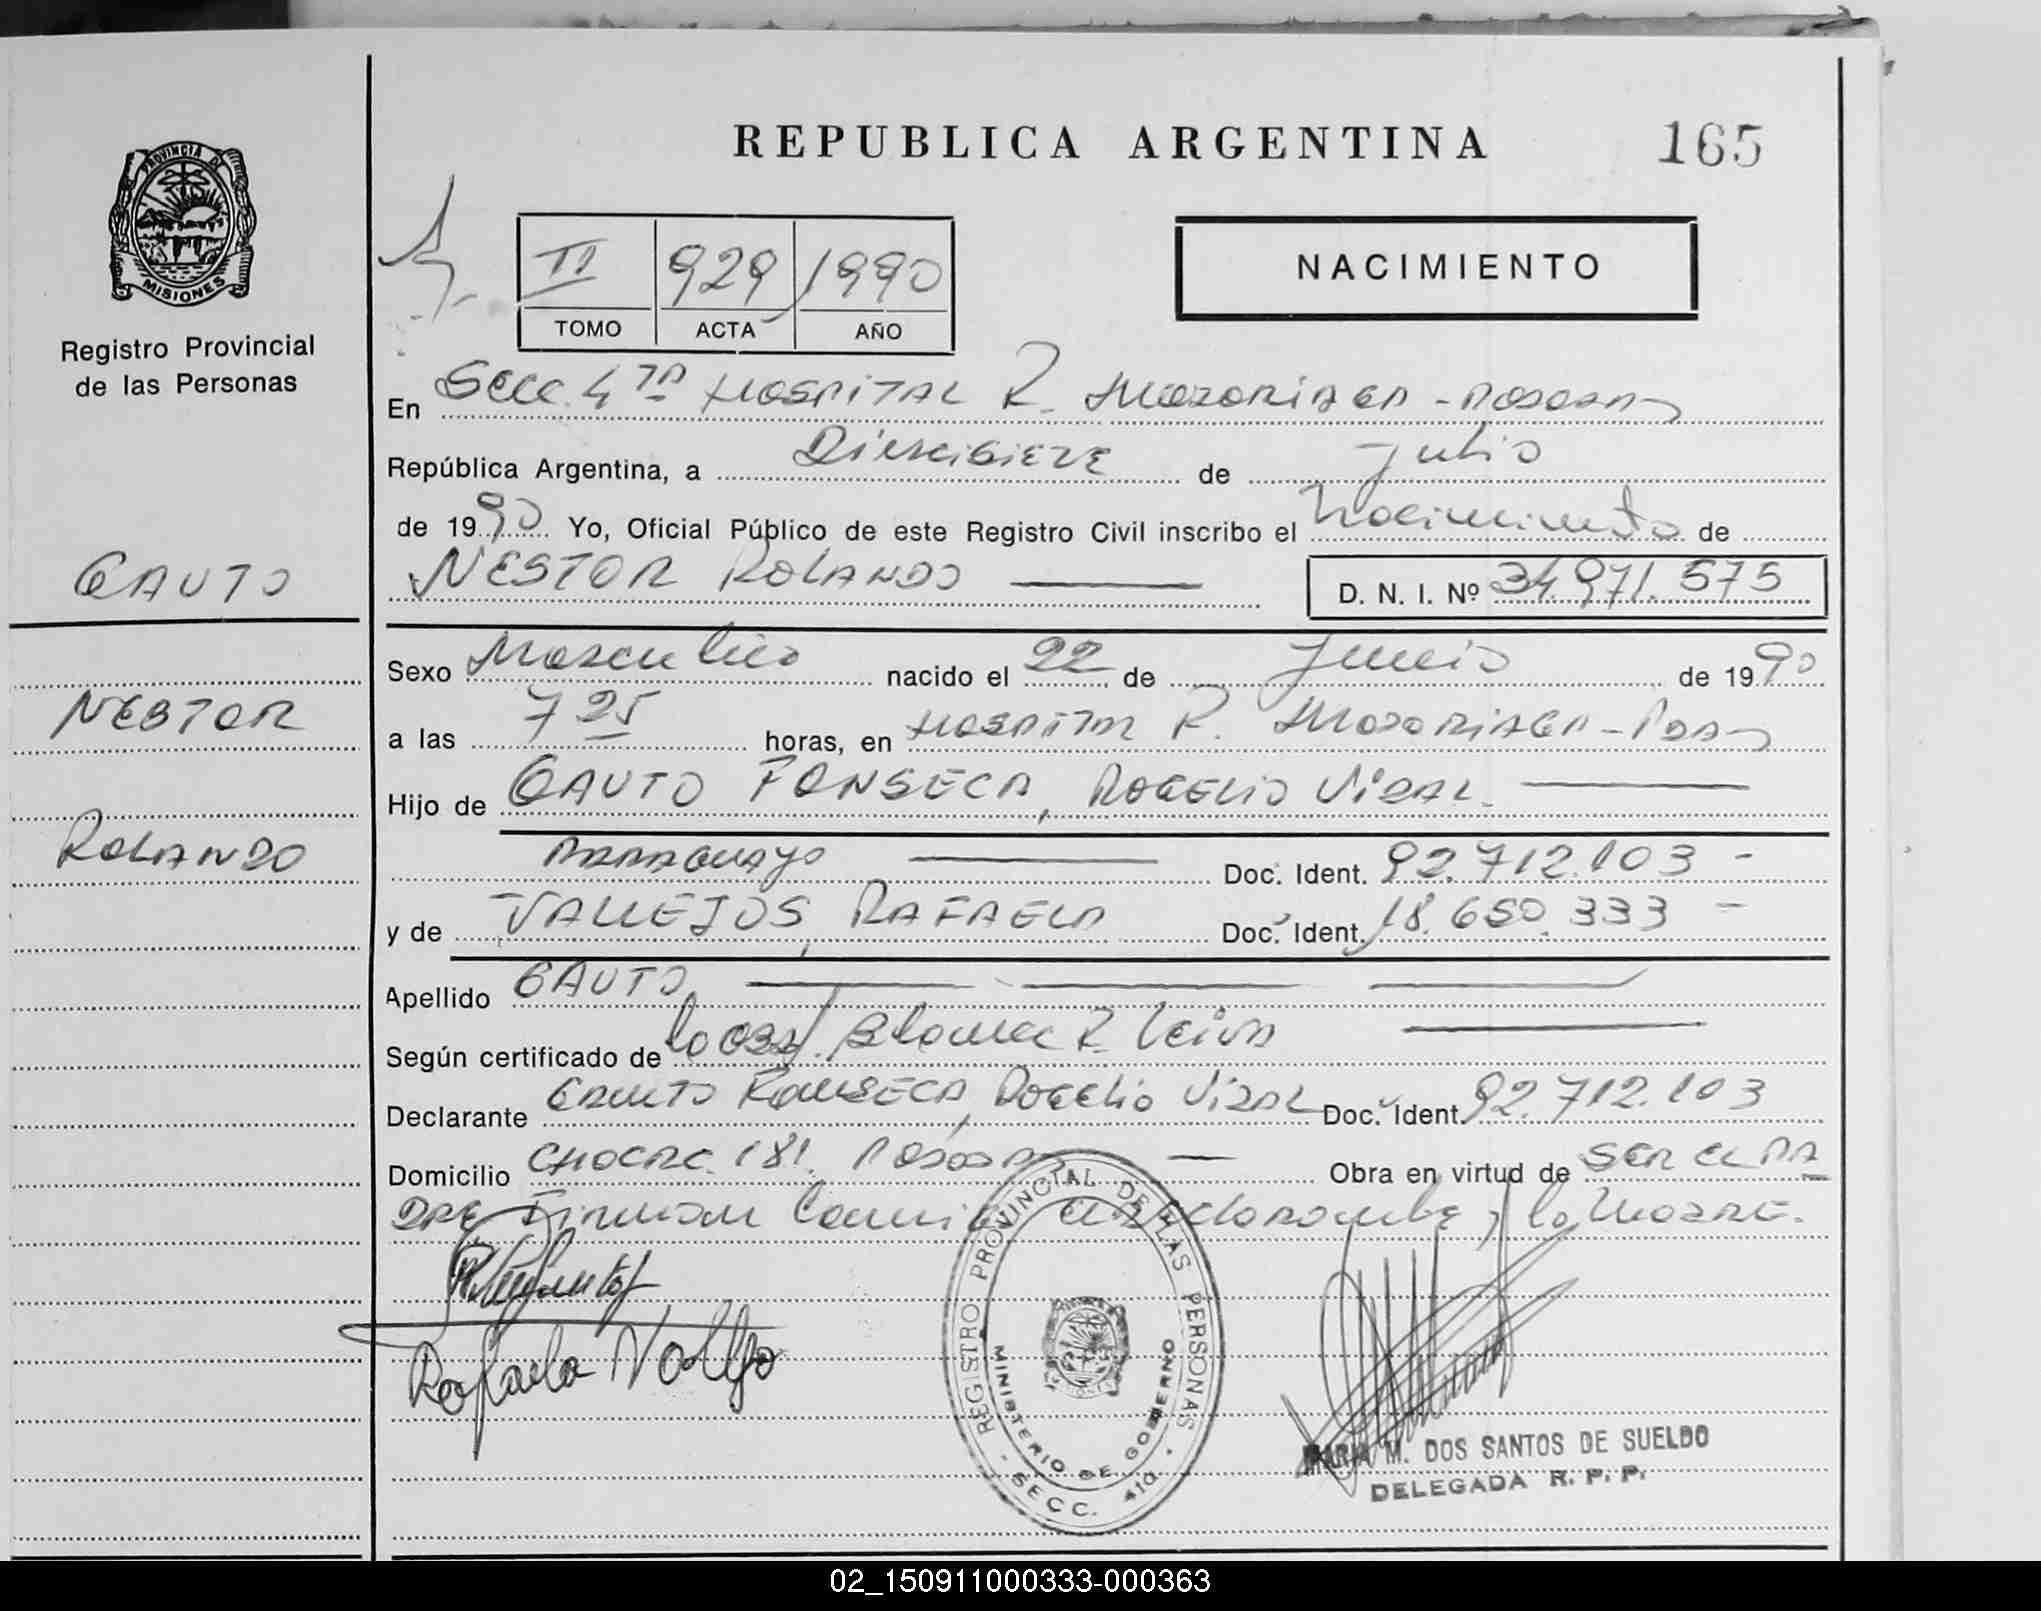 REPUBLICA ARGENTINA
165
PROVINCIA DE
MISIONES
Registro Provincial
de las Personas
II 929 1990
TOMO ACTA AÑO
NACIMIENTO
En Secc. 4ta Hospital R. Madariaga - Posadas
República Argentina, a Diecisiete de Julio
de 1990 Yo, Oficial Público de este Registro Civil inscribo el Nacimiento de
GAUTO
NESTOR ROLANDO
D. N. I. Nº 34.971.575
Sexo Masculino nacido el 22 de Junio de 1990
NESTOR
a las 7 25 horas, en Hospital R. Madariaga - Pdas
Hijo de GAUTO FONSECA, ROGELIO VIDAL
ROLANDO
PARAGUAYO Doc. Ident. 92.712.103 -
y de VALLEJOS, RAFAELA Doc. Ident. 18.650.333 -
Apellido GAUTO
Según certificado de la Obst. Blanca R. Leiva
Declarante GAUTO FONSECA, Rogelio Vidal Doc. Ident. 92.712.103
Domicilio CHACRA 181. Posadas Obra en virtud de SER EL PA
DRE Firman el Declarante y la Madre.
Rafaela Vallejo
REGISTRO PROVINCIAL DE LAS PERSONAS
MINISTERIO DE GOBIERNO
SECC. 4ta
MARIA M. DOS SANTOS DE SUELDO
DELEGADA R. P. P.
02_150911000333-000363